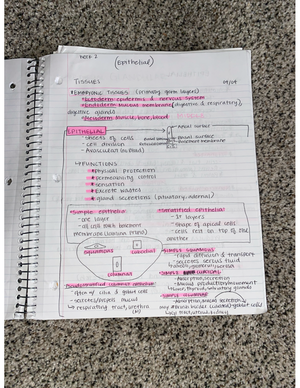 Week 2
(Epithelial)
TISSUES
*EMBRYONIC TISSUES (primary germ layers)
*Ectoderm: epidermis & nervous system
*Endoderm: mucus membrane (digestive & respiratory)
digestive glands
*Mesoderm: muscle, bone, blood
EPITHELIAL
Apical surface
- sheets of cells
- cell division
Basal surface
Basement membrane
- Avascular
FUNCTIONS
*Physical protection
*Permeability control
*Sensation
*Excrete wastes
*gland secretions
*Simple epithelial
- one layer
- all cells touch basement
membrane
squamous
cuboidal
columnar
*Stratified epithelial
- 2+ layers
- shape of apical cells
- cells rest on top of one
another
*SIMPLE SQUAMOUS
- rapid diffusion & transport
- secretes serous fluid
*SIMPLE CUBOIDAL
- Absorption, secretion
- Mucus production/movement
*SIMPLE COLUMNAR
- Absorption, mucus secretion
*Pseudostratified columnar epithelial
- secretes/propels mucus
↳ respiratory tract, urethra